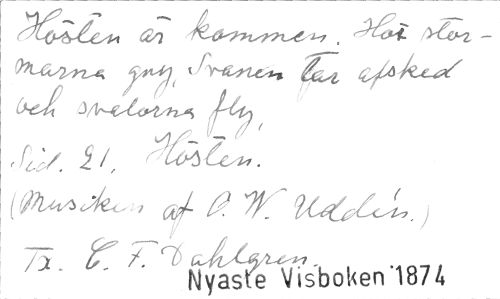 Hösten är kommen. Hör stor-
marna gny, Svanen tar afsked
och svalorna fly,
Sid. 21, Hösten.
(Musiken af O. W. Uddén.)
Tx. C. F. Dahlgren.
Nyaste Visboken 1874